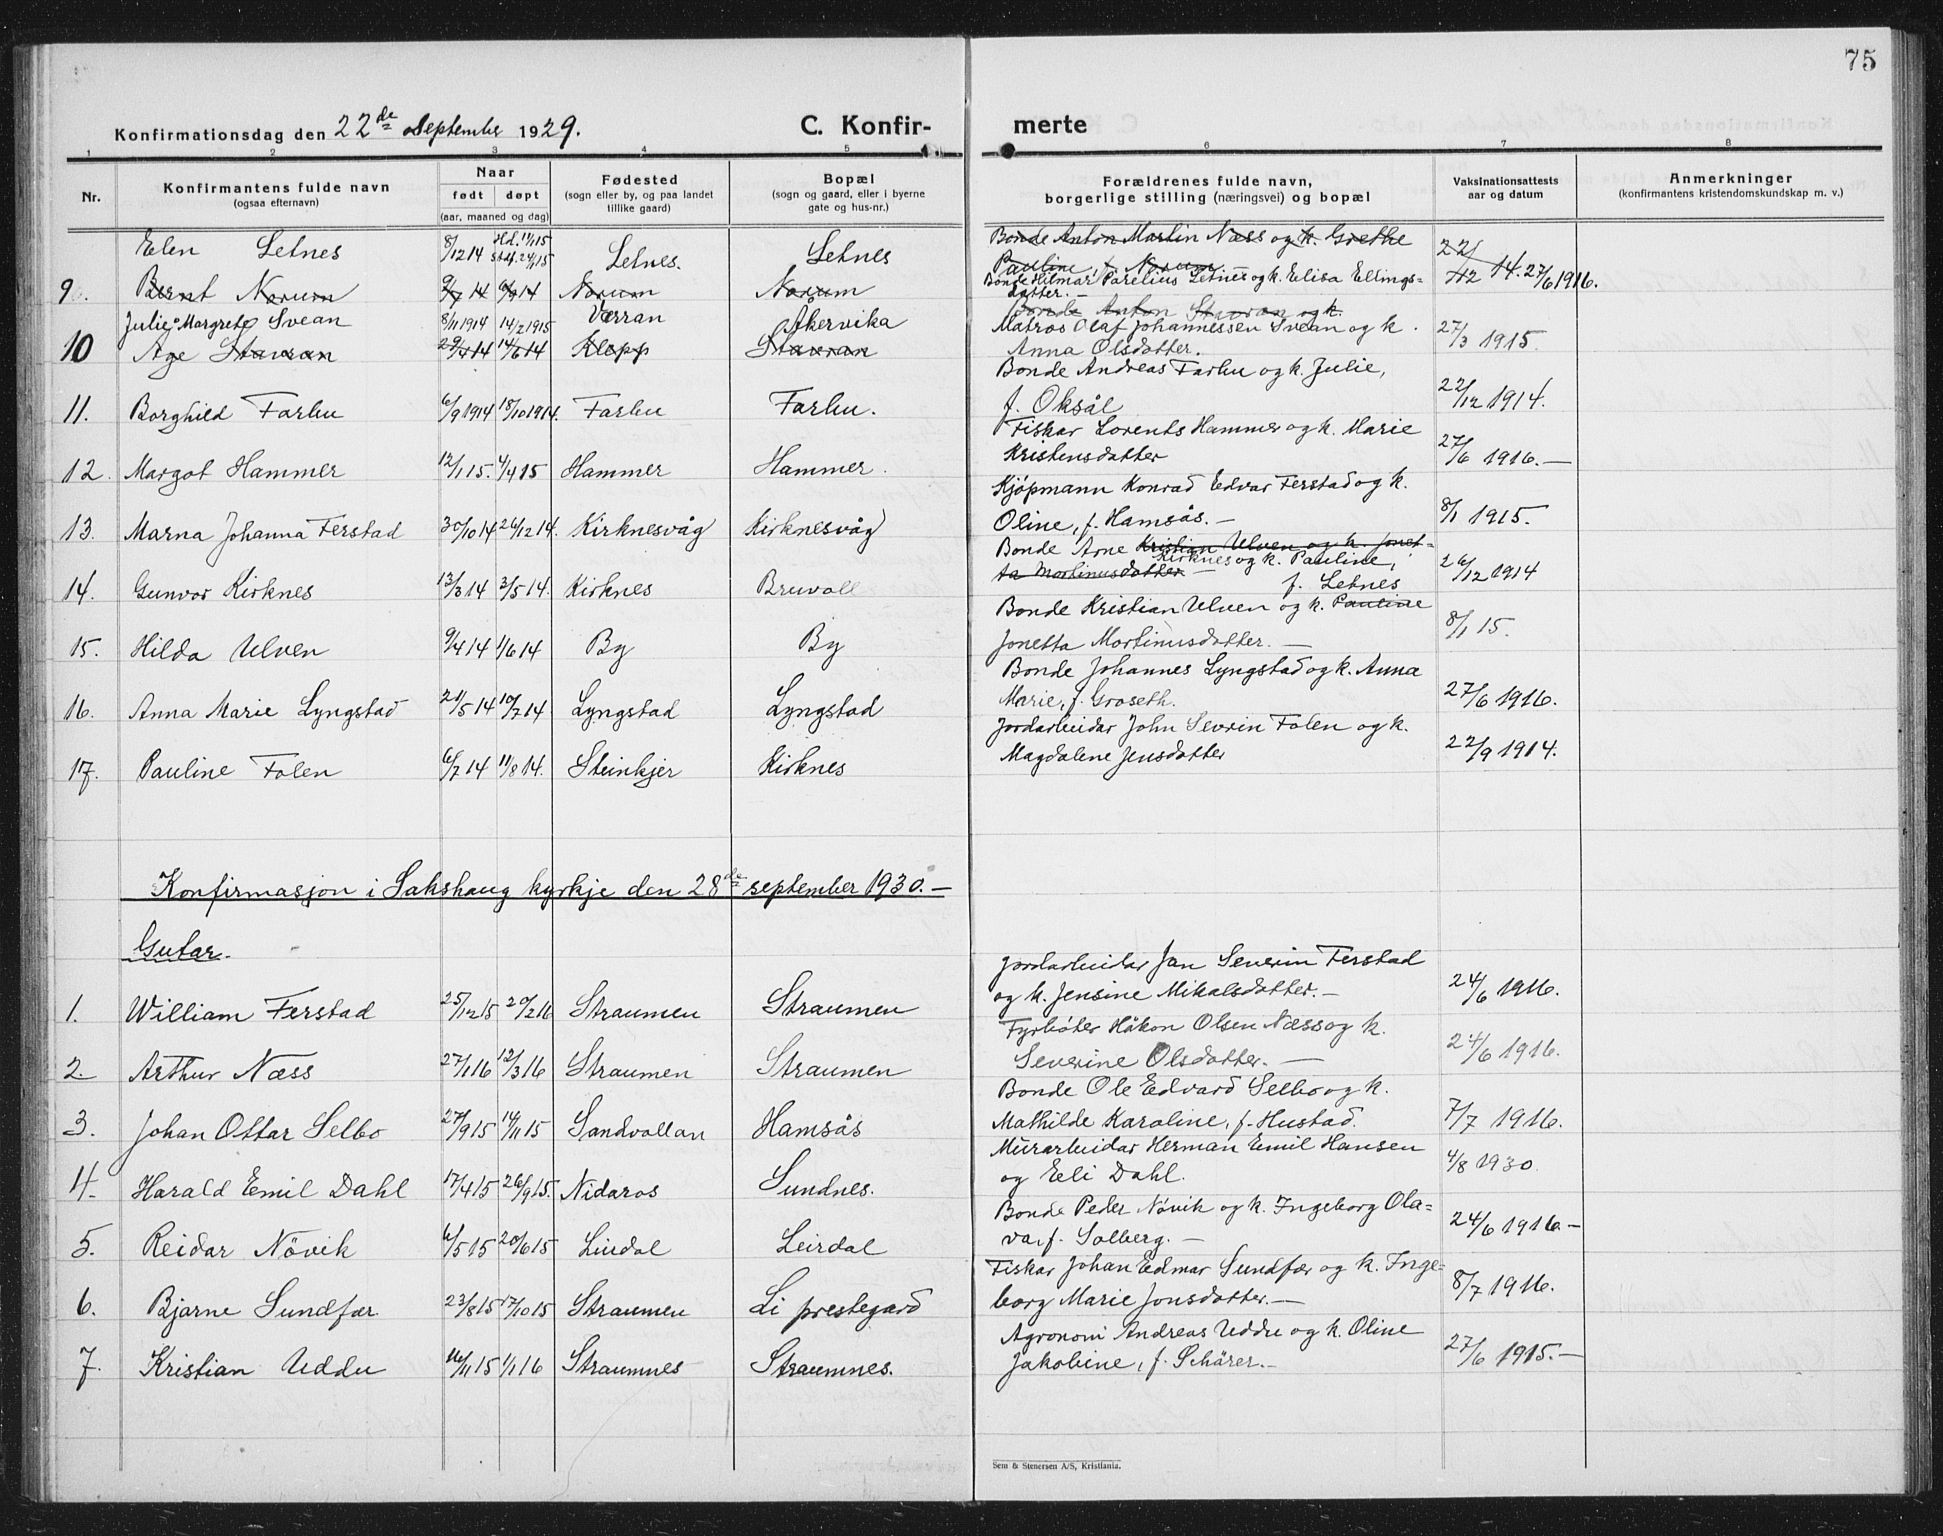 75
Konfirmationsdag den 22de September 1929. C. Konfir- merte
1 2 3 4 5 6 7 8
Nr. Konfirmantens fulde navn (ogsaa efternavn) Naar født døpt (aar, maaned og dag) Fødested (sogn eller by, og paa landet tillike gaard) Bopæl (sogn og gaard, eller i byerne gate og hus-nr.) Forældrenes fulde navn, borgerlige stilling (næringsvei) og bopæl Vaksinationsattests aar og datum Anmerkninger (konfirmantens kristendomskundskap m. v.)
Elen Letnes 8/12 14 Hd. 11/1 15 Stdf. 24/1 15 Letnes. Letnes Bonde Anton Martin Næss og k. Grethe
Pauline, f. Norum 22/12 14. 27/6 1916.
9. Bernt Norum 9/7 14 6/9 14 Norum Norum Bonde Hilmar Parelius Letnes og k. Elisa Ellings=
datter. –
Julie Margrete Svean 8/11 1914 14/2 1915 Verran Åkervika Bonde Anton Stavran og k.
Matros Olaf Johannessen Svean og k. 27/3 1915.
10 Age Stavran 14/6 14 Klopp Stavran Anna Olsdatter.
Bonde Andreas Farbu og k. Julie,
11. Borghild Farbu 6/9 1914 18/10 1914. Farbu Farbu. f. Oksål 22/12 1914.
Fiskar Lorents Hammer og k. Marie
12. Margot Hammer 12/1 15. 4/4 15 Hammer Hammer. Kristensdatter 27/6 1916. –
Kjöpmann Konrad Edvar Ferstad og k.
13. Marna Johanna Ferstad 30/10 14 26/12 14. Kirknesvåg Kirknesvåg Oline, f. Hamsås. – 8/1 1915.
Bonde Arne Kristian Ulven og k. Jonet=
ta Mortinusdatter – Kirknes og k. Pauline,
14. Gunvor Kirknes 13/3 14 3/5 14. Kirknes Bruvoll f. Letnes 26/12 1914
Bonde Kristian Ulven og k. Pauline
15. Hilda Ulven 9/4 14 1/6 14 By By Jonetta Mortinusdatter. – 8/1 15.
Bonde Johannes Lyngstad og k. Anna
16. Anna Marie Lyngstad 21/5 14 10/7 14 Lyngstad Lyngstad Marie, f. Groseth. 27/6 1916.
Jordarbeidar John Sevrin Folen og k.
17. Pauline Folen 6/7 14 11/8 14. Steinkjer Kirknes Magdalene Jensdatter 22/9 1914.
Konfirmasjon i Sakshaug kyrkje den 28de september 1930. –
Gutar.
Jordarbeidar Jan Severin Ferstad
1. William Ferstad 25/12 15 20/2 16 Straumen Straumen og k. Jensine Mikalsdatter. – 24/6 1916.
Fyrböter Håkon Olsen Næss og k.
2. Arthur Næss 27/1 16 12/3 16 Straumen Straumen Severine Olsdatter. – 24/6 1916.
Bonde Ole Edvard Selbo og k.
3. Johan Ottar Selbo 27/9 15 14/11 15 Sandvollan Hamsås Mathilde Karoline, f. Hustad. 7/7 1916.
Murarbeidar Herman Emil Hansen
4. Harald Emil Dahl 17/4 15 26/9 15. Nidaros Sundnes. og Eli Dahl. 4/8 1930
Bonde Peder Növik og k. Ingeborg Ola=
5. Reidar Növik 6/5 15 20/6 15 Lirdal Leirdal va, f. Solberg. – 24/6 1916 –
Fiskar Johan Edmar Sundfær og k. Inge=
6. Bjarne Sundfær 23/8 15 17/10 15 Straumen Li prestegard borg Marie Jonsdatter. – 8/7 1916.
Agronom Andreas Uddu og k. Oline
7. Kristian Uddu 16/11 15 1/1 16 Straumnes Straumnes. Jakobine, f. Schärer. – 27/6 1915. –
Sem & Stenersen A/S, Kristiania.